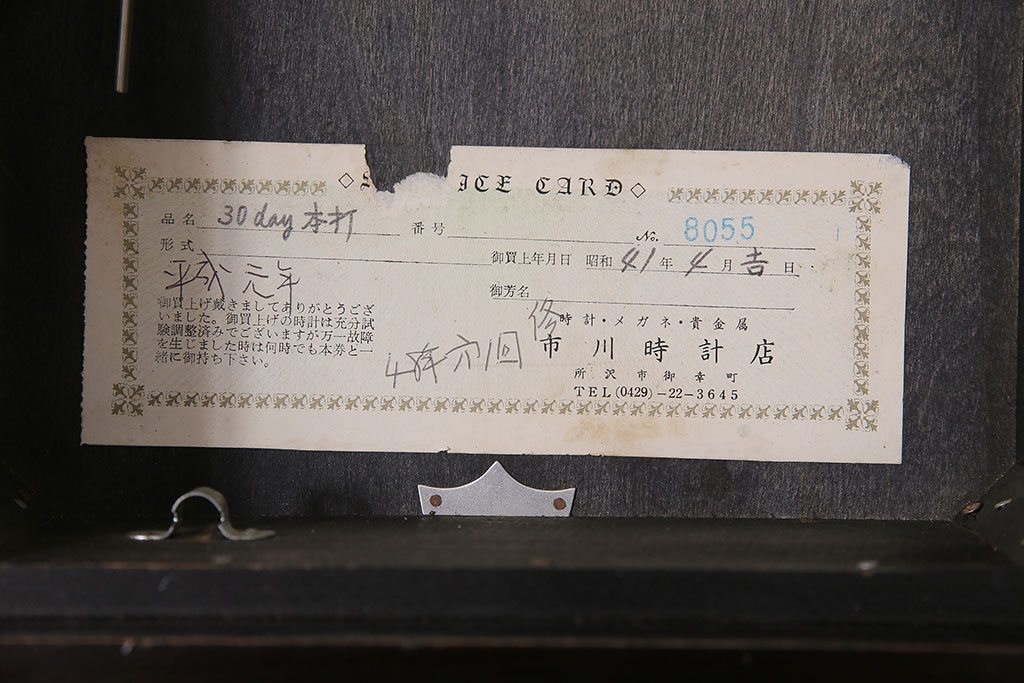 ICE CARD
品名 30 day 本打 番号
No. 8055
形式
御買上年月日 昭和 41 年 4 月 吉 日
平成元年
御芳名
御買上げ戴きましてありがとうござ
いました。御買上げの時計は充分試
験調整済みでございますが万一故障
を生じました時は何時でも本券と一
緒に御持ち下さい。
修
時計・メガネ・貴金属
市川時計店
所沢市御幸町
TEL(0429)-22-3645